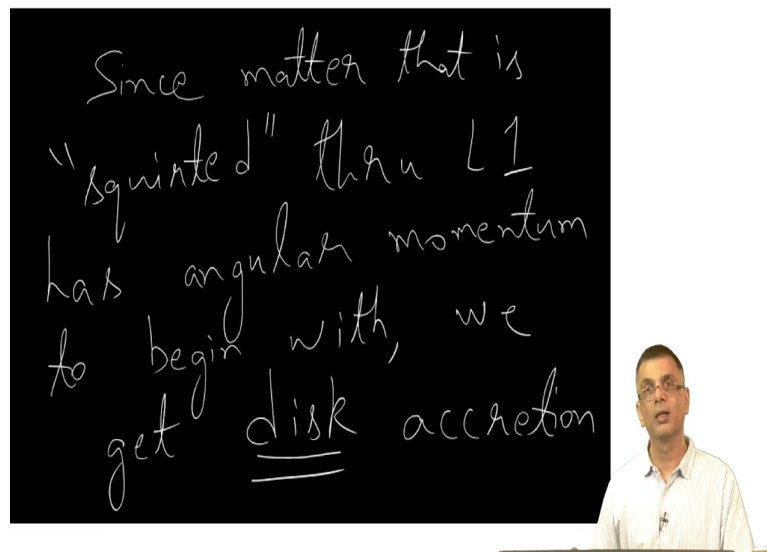 Since matter that is
"squirted" thru L1
has angular momentum
to begin with, we
get disk accretion